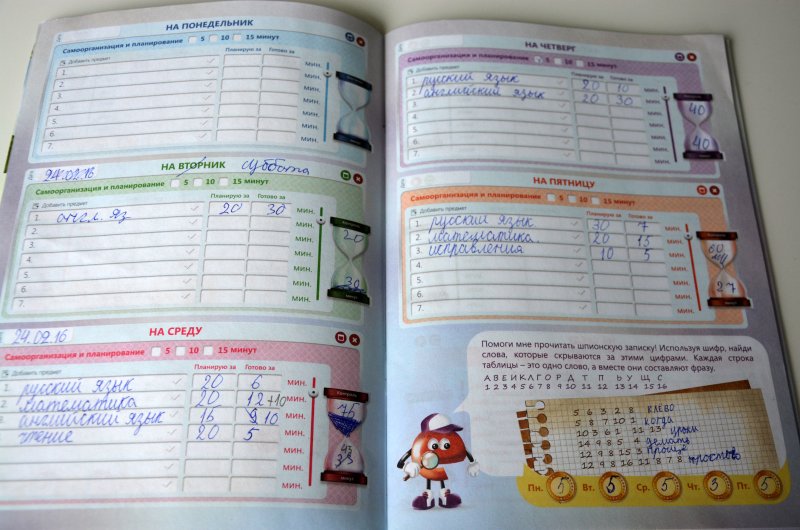 НА ПОНЕДЕЛЬНИК
Самоорганизация и планирование 5 10 15 минут
Добавить предмет Планирую за Готово за
1. мин.
2. мин.
3. мин.
4. мин.
5. мин.
6. мин.
7. мин.
НА ВТОРНИК суббота
Самоорганизация и планирование 5 10 15 минут
Добавить предмет Планирую за Готово за
1. англ. яз 20 30 мин.
2. мин. 20
3. мин.
4. мин.
5. мин.
6. мин. 30
7. мин. Минут
24.02.16 НА СРЕДУ
Самоорганизация и планирование 5 10 15 минут
Добавить предмет Планирую за Готово за
1. русский язык 20 6 мин.
2. математика 20 12+10 мин.
английский язык 15 10 мин.
чтение 20 5 мин.
мин.
мин.
мин.
НА ЧЕТВЕРГ
Самоорганизация и планирование 5 10 15 минут
Планирую за Готово за
1. русский язык 20 10 мин.
2. английский язык 20 30 мин. 40
3. мин.
4. мин.
5. мин. 40
6. мин.
7. мин.
НА ПЯТНИЦУ
Самоорганизация и планирование 5 10 15 минут
Добавить предмет Планирую за Готово за
1. русский язык 30 7 мин.
2. математика 20 15 мин.
3. исправления 10 5 мин. 60
4. мин.
5. мин. 27
6. мин.
7. мин.
Помоги мне прочитать шпионскую записку! Используя шифр, найди
слова, которые скрываются за этими цифрами. Каждая строка
таблицы – это одно слово, а вместе они составляют фразу.
А В Е И К Л Г О Р Д Т П Ь У Щ С
1 2 3 4 5 6 7 8 9 10 11 12 13 14 15 16
5 6 3 2 8 клево
5 8 7 10 1 когда
10 3 6 1 11 13 уроки
14 9 8 5 4 делать
12 9 8 15 3 проще
12 9 8 16 11 8 7 8 простого
Пн. 5 Вт. 5 Ср. 5 Чт. 3 Пт. 5